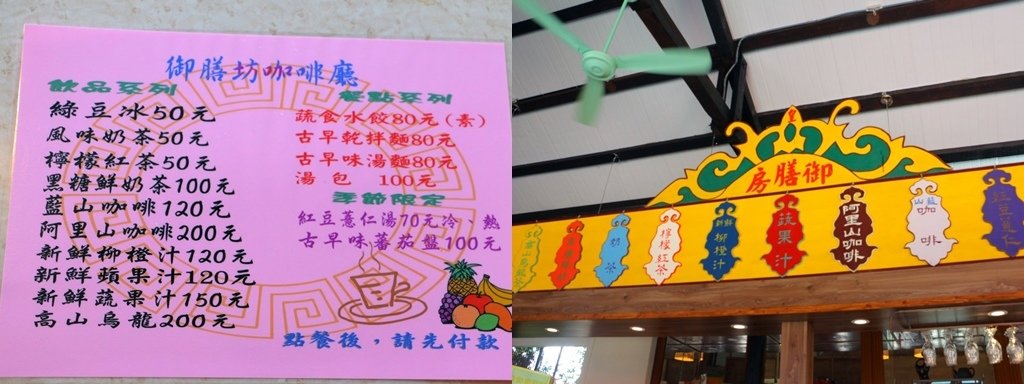 御膳坊咖啡廳
飲品系列
綠豆冰50元
風味奶茶50元
檸檬紅茶50元
黑糖鮮奶茶100元
藍山咖啡120元
阿里山咖啡200元
新鮮柳橙汁120元
新鮮蘋果汁120元
新鮮蔬果汁150元
高山烏龍200元
餐點系列
蔬食水餃80元(素)
古早乾拌麵80元
古早味湯麵80元
湯包 100元
季節限定
紅豆薏仁湯70元冷、熱
古早味蕃茄盤100元
點餐後，請先付款
皇
御膳房
高山烏龍茶
奶茶
檸檬紅茶
新鮮柳橙汁
蔬果汁
阿里山咖啡
藍山咖啡
紅豆薏仁